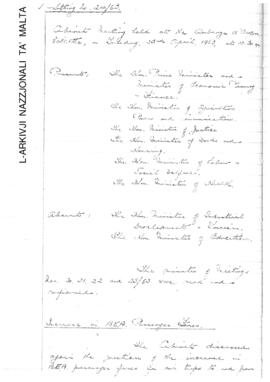 L-ARKIVJI NAZZJONALI TA' MALTA
Sitting No. 24/63.
Cabinet Meeting held at the Auberge d'
Valletta, on Tuesday, 23rd April, 1963, at
Present: The Hon. Prime Minister and
Minister of Economic Planning
& Finance.
The Hon. Minister of Agriculture
Power and Communications.
The Hon. Minister of Justice
The Hon. Minister of Works and
Housing.
The Hon. Minister of Labour &
Social Welfare.
The Hon. Minister of Health.
Absent: The Hon. Minister of Industrial
Development & Tourism.
The Hon. Minister of Education.
The minutes of Meetings
Nos. 20, 21, 22 and 23/63 were read and
confirmed.
Increase in BEA Passenger Fares.
The Cabinet discussed
again the question of the increase in
BEA passenger fares for air trips to and from